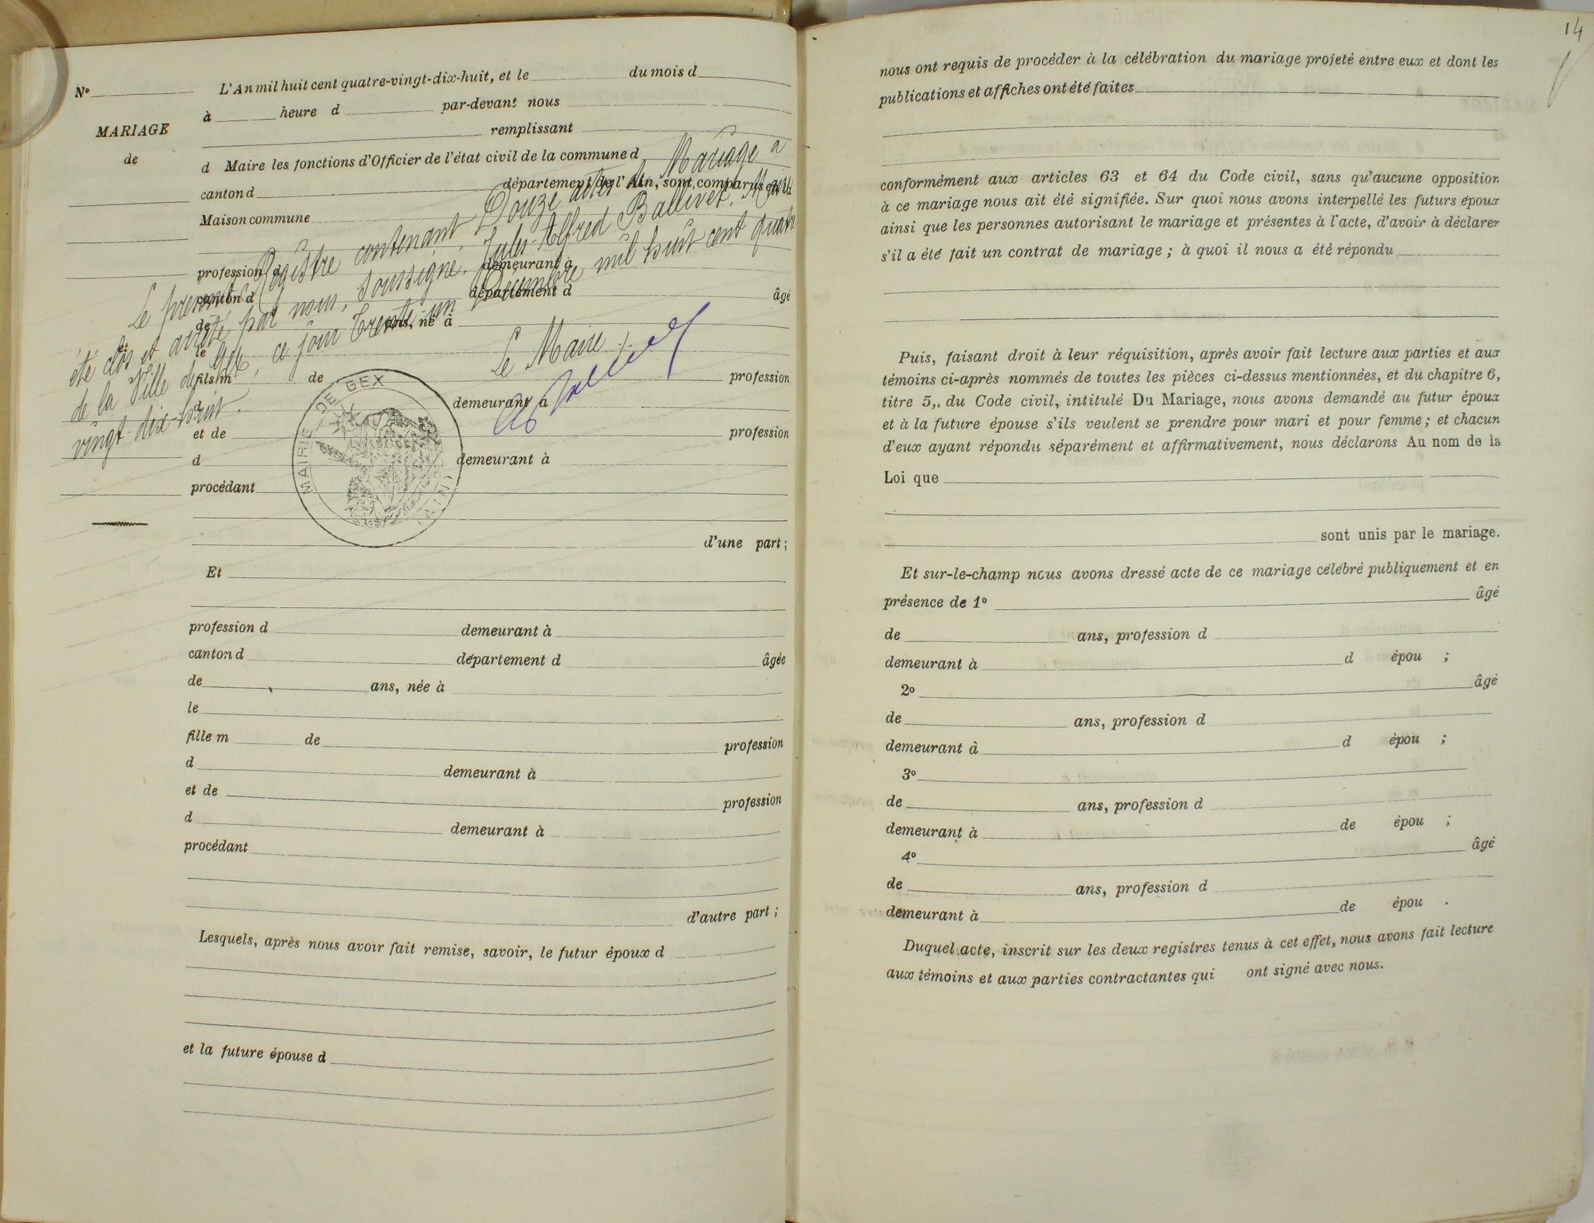 Nº
MARIAGE
de
L'An mil huit cent quatre-vingt-dix-huit, et le du mois d
à heure d par-devant nous
remplissant
d Maire les fonctions d'Officier de l'état civil de la commune d
canton d département de l'Ain, sont comparus en
Maison commune
profession d demeurant à
canton d département d âgé
de ans, né à
le
fils m de profession
d demeurant à
et de profession
d demeurant à
procédant
d'une part;
Et
profession d demeurant à
canton d département d âgée
de ans, née à
le
fille m de profession
d demeurant à
et de profession
d demeurant à
procédant
d'autre part;
Lesquels, après nous avoir fait remise, savoir, le futur époux d
et la future épouse d
Le présent Registre contenant Douze actes de Mariage a
été clos et arrêté par nous, soussigné, Jules Alfred Ballivet, Maire
de la Ville de Gex, ce jour trente un Décembre, mil huit cent quatre
vingt dix-huit.
Le Maire
MAIRIE DE GEX
(AIN)
14
nous ont requis de procéder à la célébration du mariage projeté entre eux et dont les
publications et affiches ont été faites
conformément aux articles 63 et 64 du Code civil, sans qu'aucune opposition
à ce mariage nous ait été signifiée. Sur quoi nous avons interpellé les futurs époux
ainsi que les personnes autorisant le mariage et présentes à l'acte, d'avoir à déclarer
s'il a été fait un contrat de mariage; à quoi il nous a été répondu
Puis, faisant droit à leur réquisition, après avoir fait lecture aux parties et aux
témoins ci-après nommés de toutes les pièces ci-dessus mentionnées, et du chapitre 6,
titre 5,. du Code civil, intitulé Du Mariage, nous avons demandé au futur époux
et à la future épouse s'ils veulent se prendre pour mari et pour femme; et chacun
d'eux ayant répondu séparément et affirmativement, nous déclarons Au nom de la
Loi que
sont unis par le mariage.
Et sur-le-champ nous avons dressé acte de ce mariage célébré publiquement et en
présence de 1º âgé
de ans, profession d
demeurant à d épou ;
2º âgé
de ans, profession d
demeurant à d épou ;
3º
de ans, profession d
demeurant à de épou ;
4º âgé
de ans, profession d
demeurant à de épou .
Duquel acte, inscrit sur les deux registres tenus à cet effet, nous avons fait lecture
aux témoins et aux parties contractantes qui ont signé avec nous.